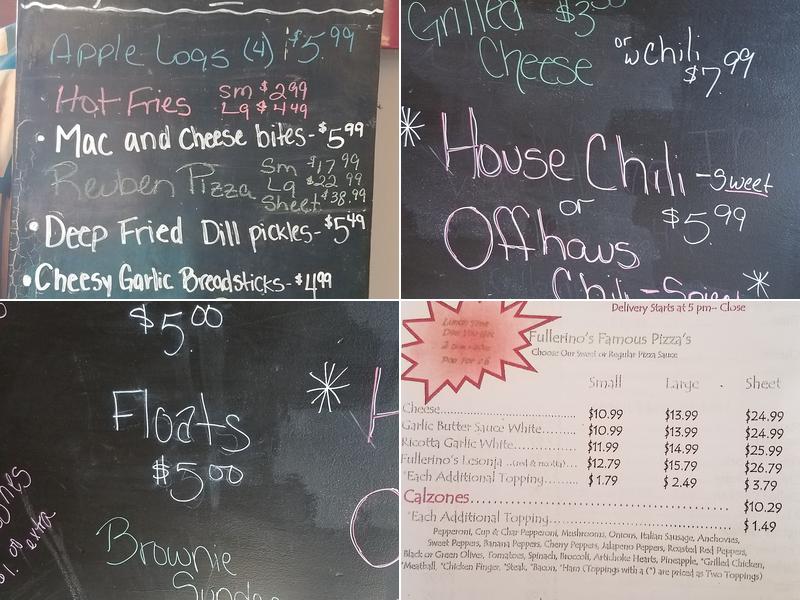 Apple Logs (4) $5.99
Hot Fries Sm $2.99
Lg $4.49
• Mac and Cheese bites - $5.99
Reuben Pizza Sm $17.99
Lg $22.99
Sheet $38.99
• Deep Fried Dill pickles - $5.49
• Cheesy Garlic Breadsticks - $4.99
Grilled $3.00
Cheese or w Chili
$7.99
House Chili - Sweet
or $5.99
Offhaus
Chili - Spicy
$5.00
Floats
$5.00
$1.00 extra
Brownie
Sundae
Delivery Starts at 5 pm-- Close
Fullerino's Famous Pizza's
Choose Our Sweet or Regular Pizza Sauce
Small Large Sheet
Cheese $10.99 $13.99 $24.99
Garlic Butter Sauce White $10.99 $13.99 $24.99
Ricotta Garlic White $11.99 $14.99 $25.99
Fullerino's Lesonja ..(red & ricotta).. $12.79 $15.79 $26.79
*Each Additional Topping $1.79 $2.49 $3.79
Calzones $10.29
*Each Additional Topping $1.49
Pepperoni, Cup & Char Pepperoni, Mushrooms, Onions, Italian Sausage, Anchovies,
Sweet Peppers, Banana Peppers, Cherry Peppers, Jalapeno Peppers, Roasted Red Peppers,
Black or Green Olives, Tomatoes, Spinach, Broccoli, Artichoke Hearts, Pineapple, *Grilled Chicken,
*Meatball, *Chicken Finger, *Steak, *Bacon, *Ham (Toppings with a (*) are priced as Two Toppings)